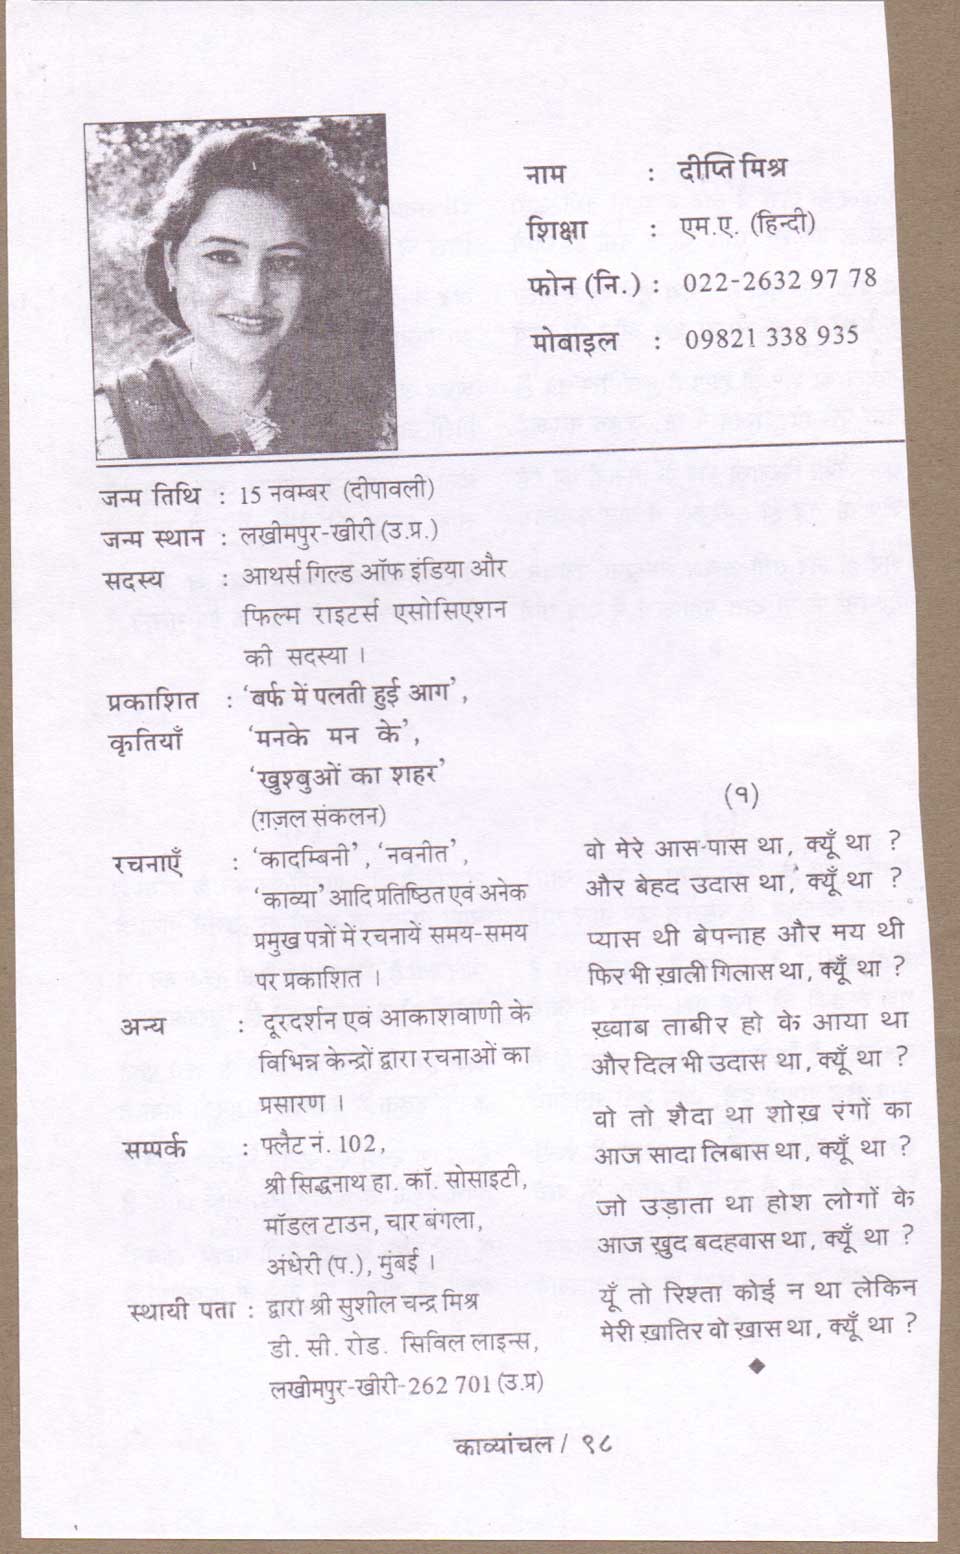 नाम : दीप्ति मिश्र
शिक्षा : एम.ए. (हिन्दी)
फोन (नि.) : 022-2632 97 78
मोबाइल : 09821 338 935
जन्म तिथि : 15 नवम्बर (दीपावली)
जन्म स्थान : लखीमपुर-खीरी (उ.प्र.)
सदस्य : आथर्स गिल्ड ऑफ इंडिया और
फिल्म राइटर्स एसोसिएशन
की सदस्या ।
प्रकाशित : 'बर्फ में पलती हुई आग',
कृतियाँ 'मनके मन के',
'खुश्बुओं का शहर'
(ग़ज़ल संकलन)
रचनाएँ : 'कादम्बिनी', 'नवनीत',
'काव्या' आदि प्रतिष्ठित एवं अनेक
प्रमुख पत्रों में रचनायें समय-समय
पर प्रकाशित ।
अन्य : दूरदर्शन एवं आकाशवाणी के
विभिन्न केन्द्रों द्वारा रचनाओं का
प्रसारण ।
सम्पर्क : फ्लैट नं. 102,
श्री सिद्धनाथ हा. कॉ. सोसाइटी,
मॉडल टाउन, चार बंगला,
अंधेरी (प.), मुंबई ।
स्थायी पता : द्वारा श्री सुशील चन्द्र मिश्र
डी. सी. रोड. सिविल लाइन्स,
लखीमपुर-खीरी-262 701 (उ.प्र)
(१)
वो मेरे आस-पास था, क्यूँ था ?
और बेहद उदास था, क्यूँ था ?
प्यास थी बेपनाह और मय थी
फिर भी ख़ाली गिलास था, क्यूँ था ?
ख़्वाब ताबीर हो के आया था
और दिल भी उदास था, क्यूँ था ?
वो तो शैदा था शोख़ रंगो का
आज सादा लिबास था, क्यूँ था ?
जो उड़ाता था होश लोगों के
आज ख़ुद बदहवास था, क्यूँ था ?
यूँ तो रिश्ता कोई न था लेकिन
मेरी ख़ातिर वो ख़ास था, क्यूँ था ?
काव्यांचल / ९८